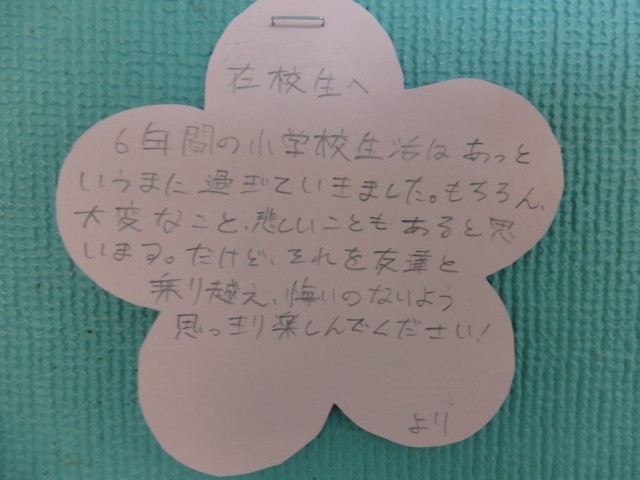 在校生へ
6年間の小学校生活はあっと
いうまに過ぎていきました。もちろん、
大変なこと、悲しいこともあると思
います。だけど、それを友達と
乗り越え、悔いのないよう
思っきり楽しんでください!
より